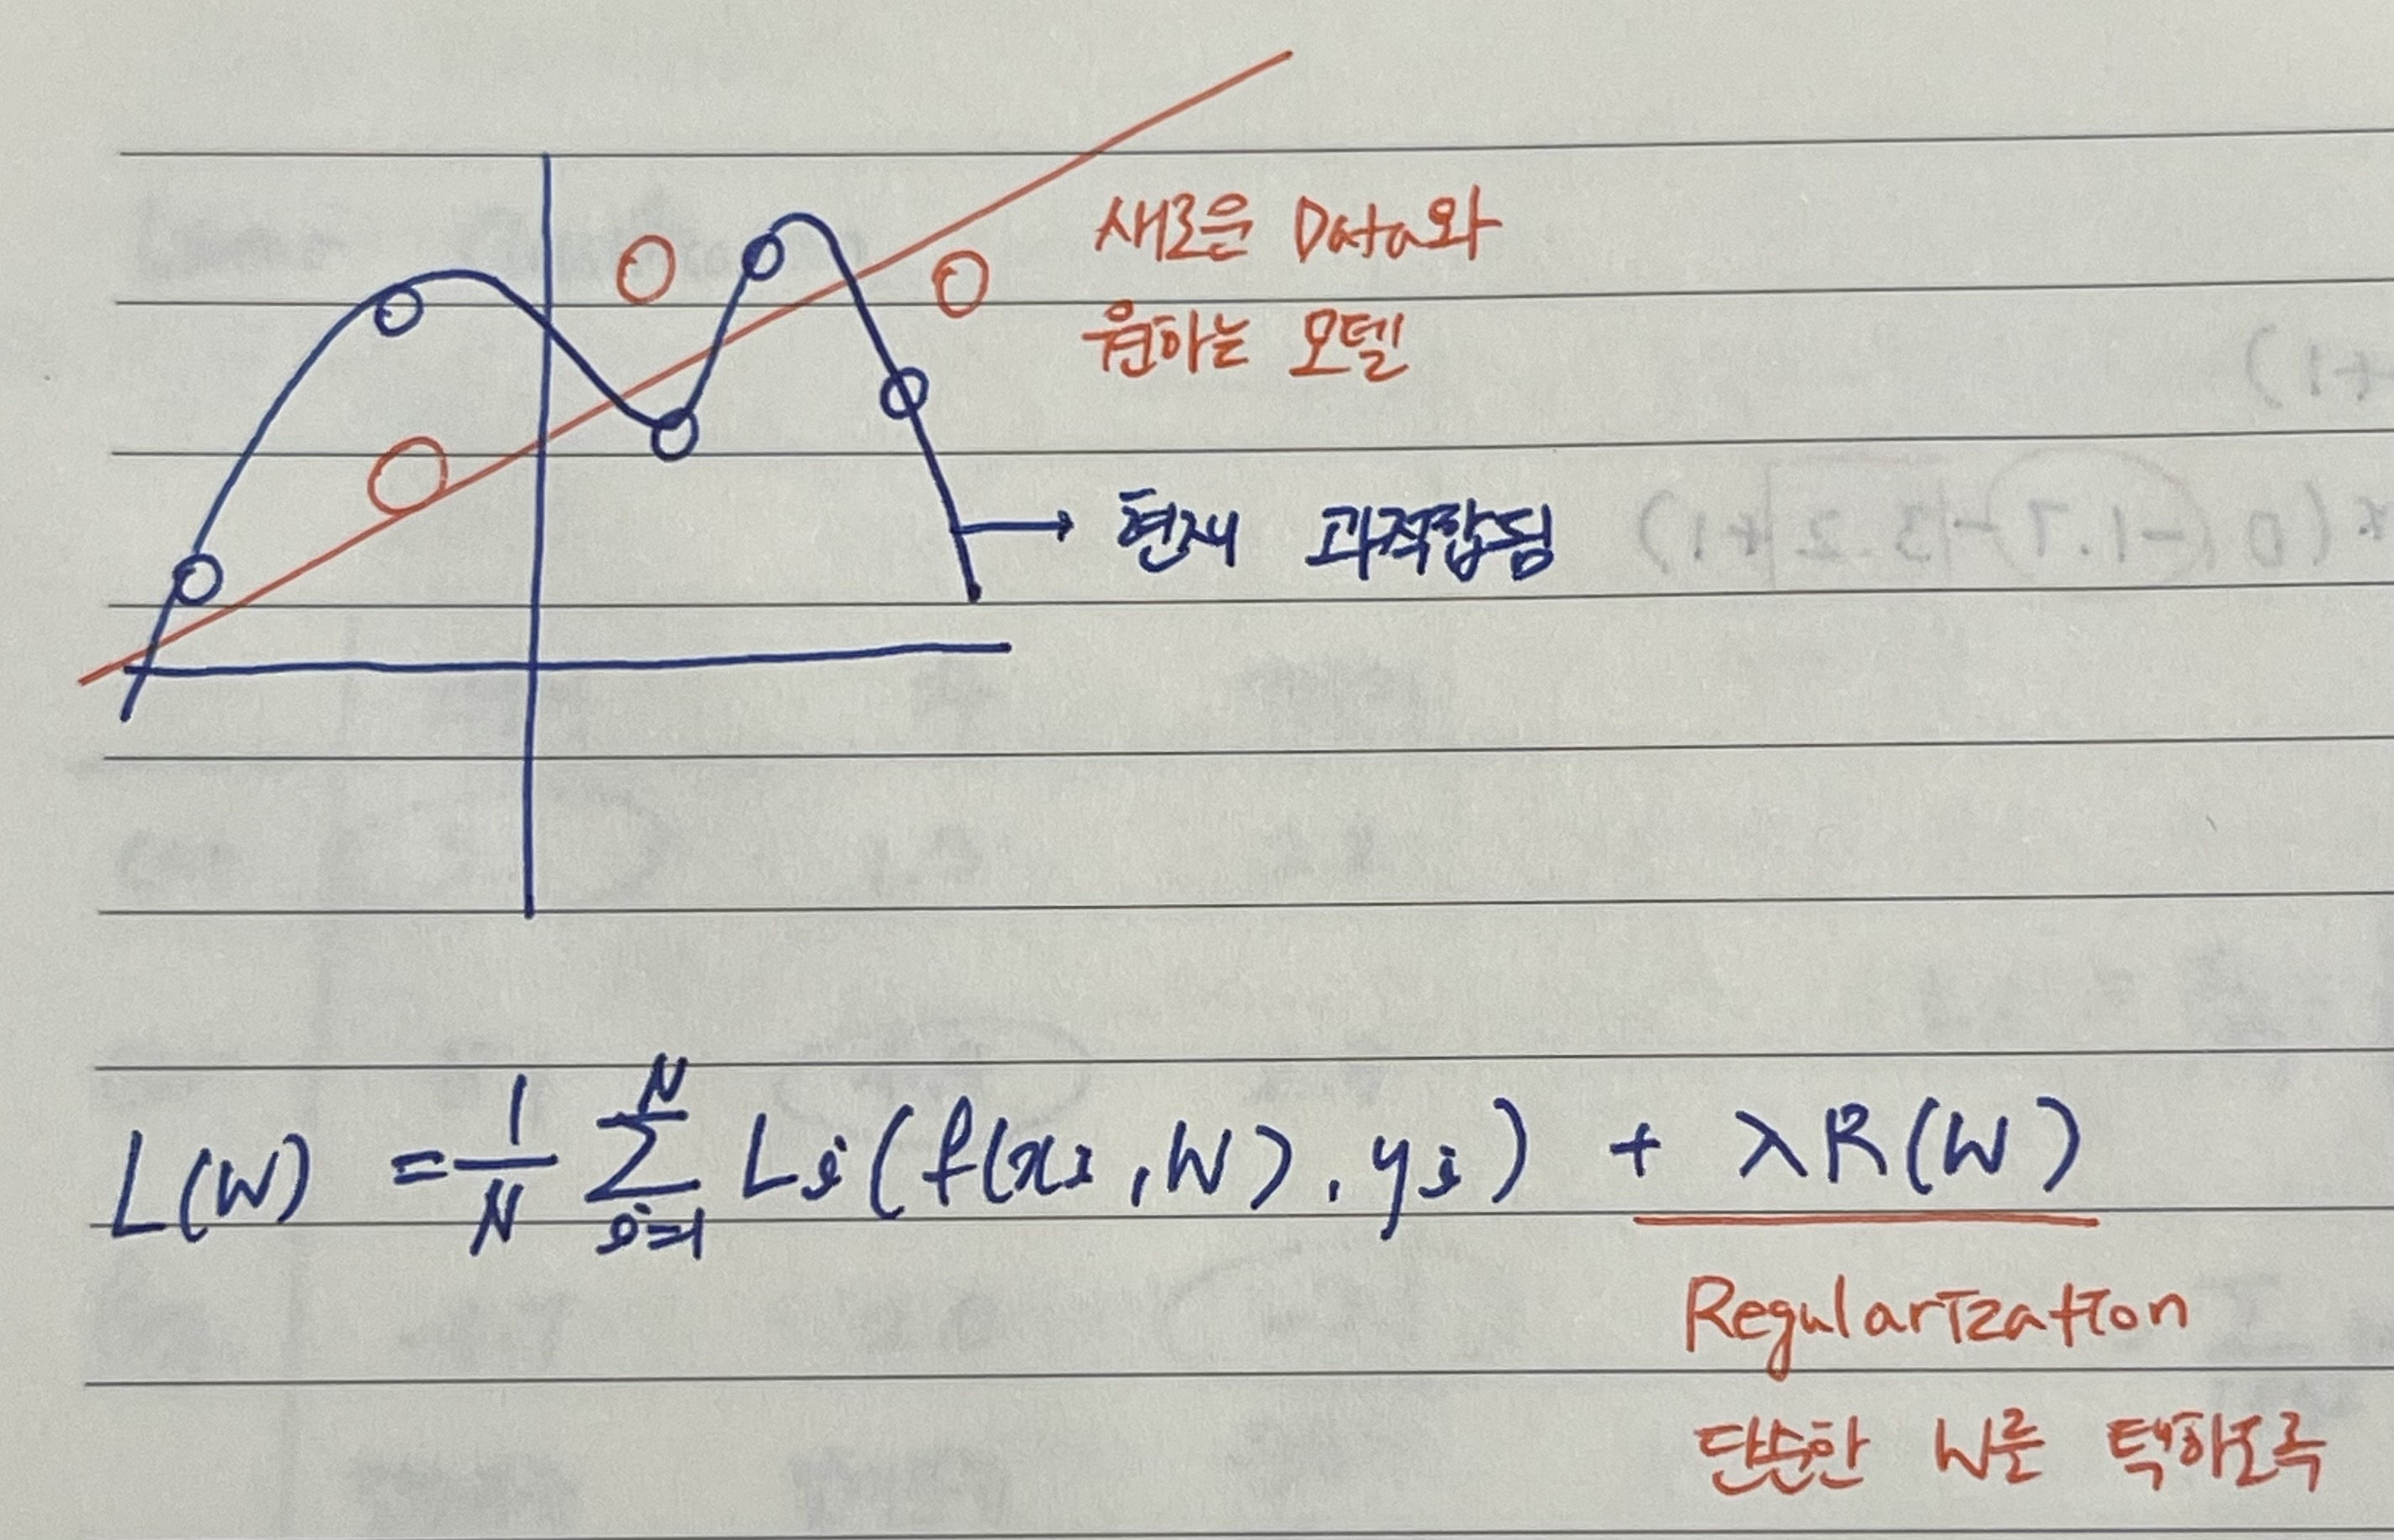 새로운 Data와
원하는 모델
→ 현재 과적합됨
L(W) = 1/N ∑ᵢ₌₁ᴺ Lᵢ(f(xᵢ, W), yᵢ) + λR(W)
Regularization
단순한 W를 택하도록